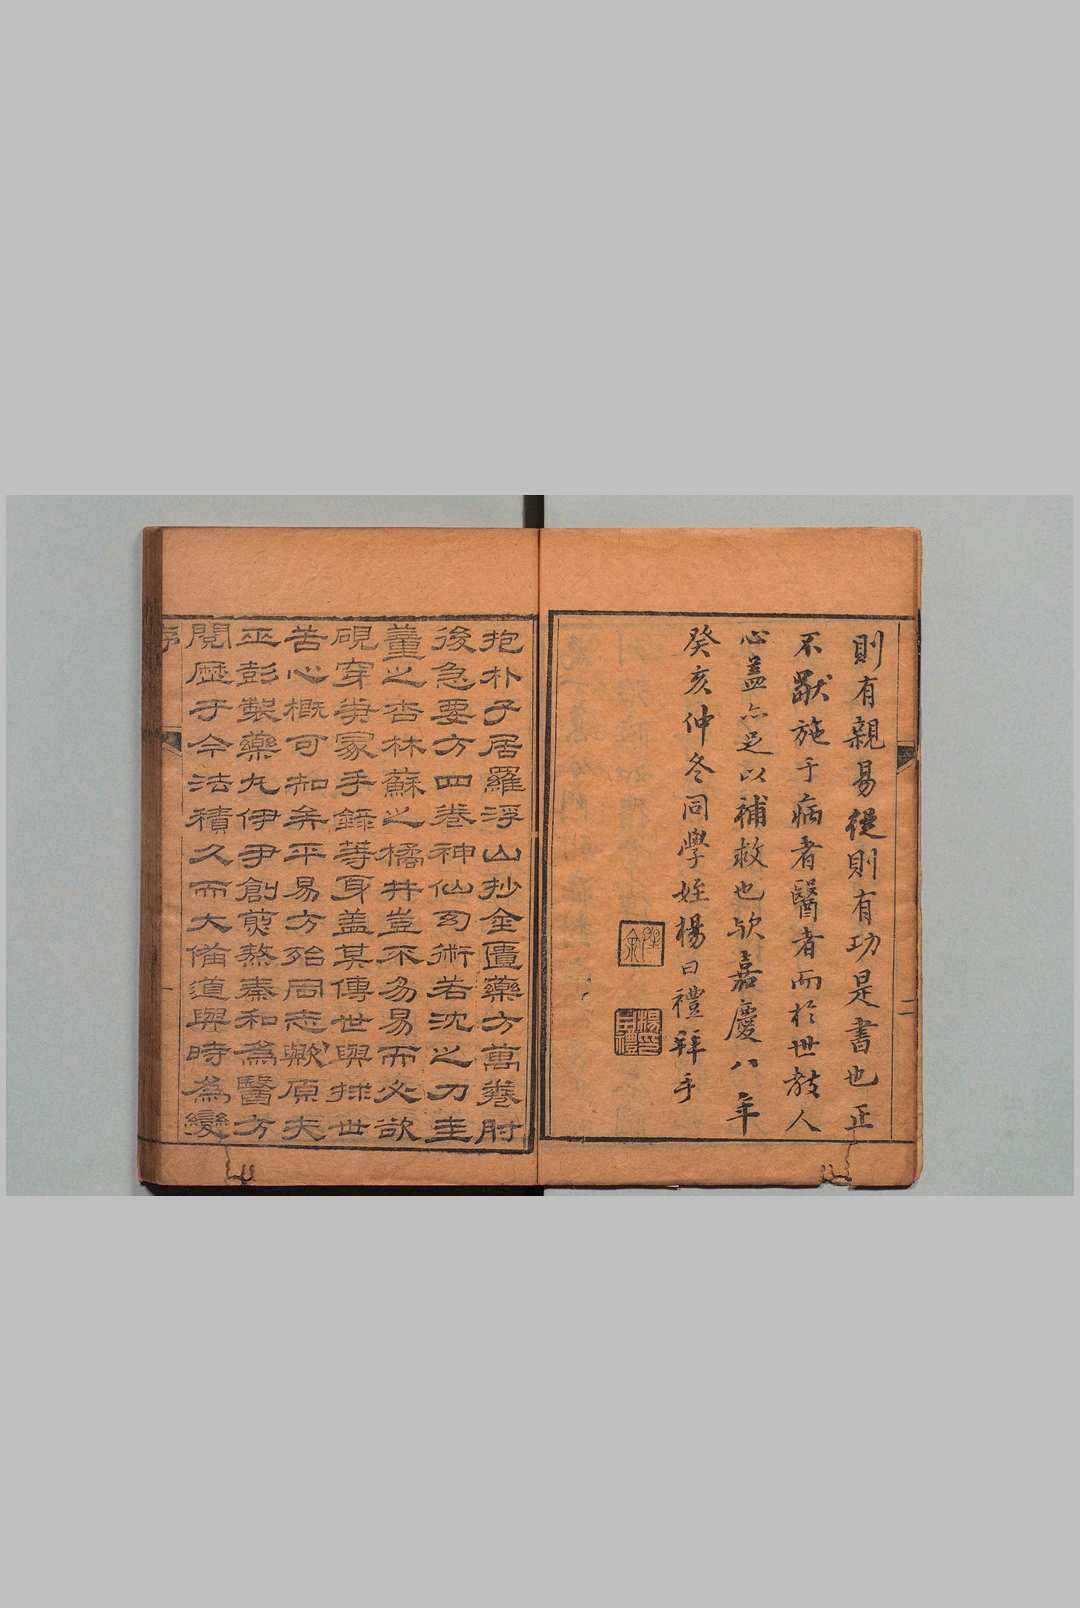 則有親易從則有功是書也正
不獣施于病者醫者而於世教人
心蓋亦足以補救也歟嘉慶八年
癸亥仲冬同學姪楊曰禮拜手
二
抱朴子居羅浮山抄金匱藥方萬卷肘
後急要方四卷神仙幻術若沈之刀圭
董之杏林蘇之橘井豈不易易而必欲
硯穿筆冢手錄等身蓋其傳世與捄世
苦心概可知矣平易方殆同志歟原夫
巫彭製藥九伊尹創煎熬秦和為醫方
閱歷于今法積久而大備道與時為變
序
一